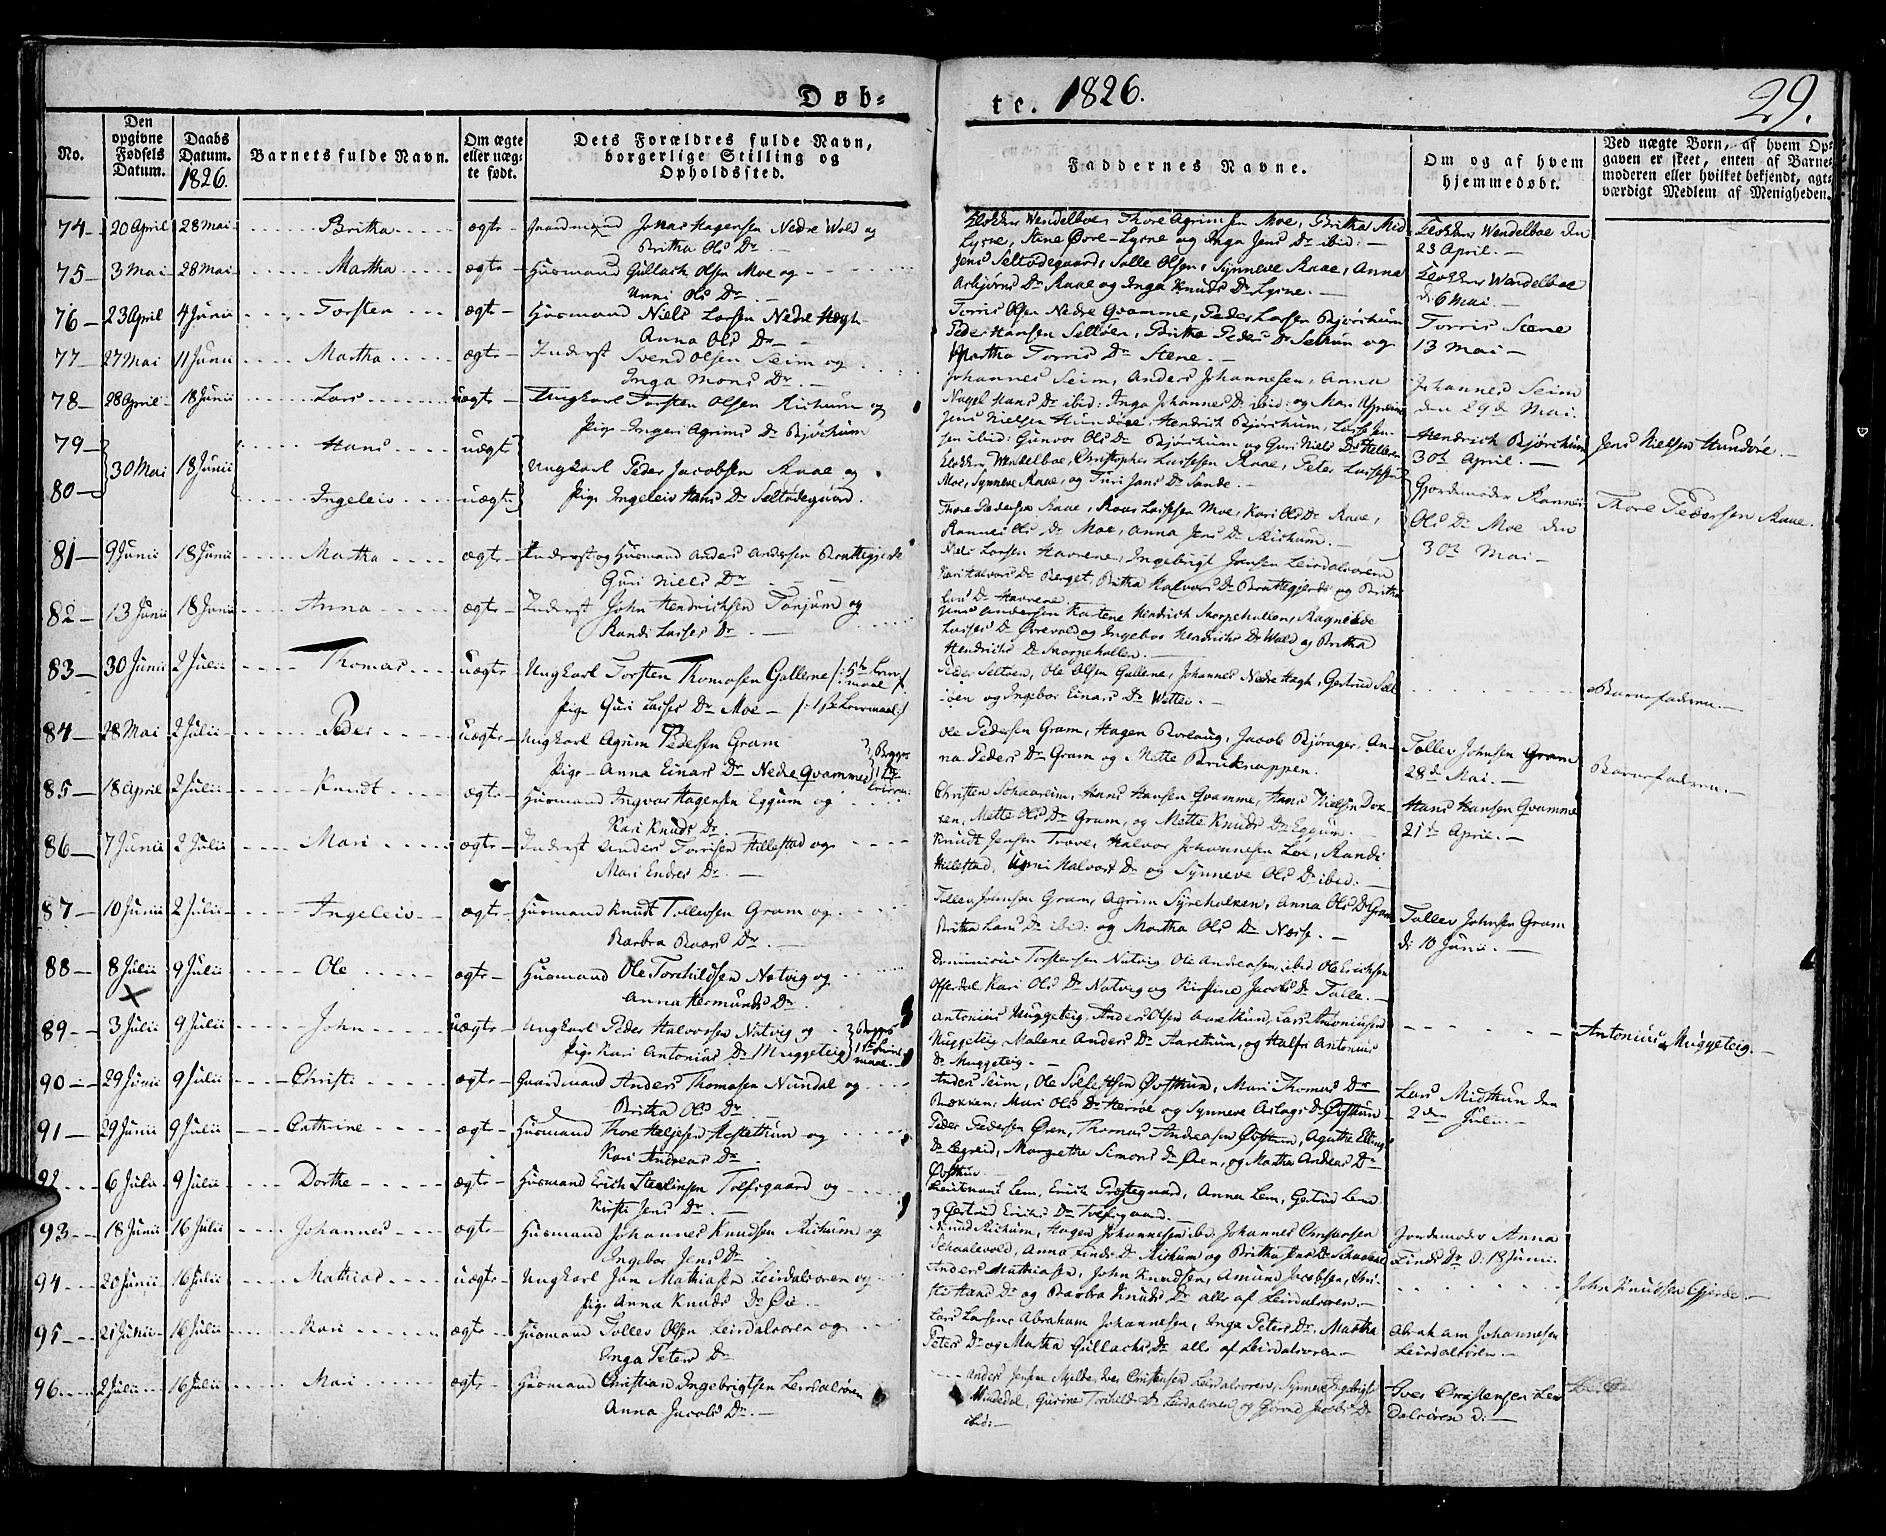 Døb-
te. 1826.
29.
No.
Den opgivne Fødsels Datum.
Daabs Datum. 1826.
Barnets fulde Navn.
Om ægte eller uægte født.
Dets Forældres fulde Navn, borgerlige Stilling og Opholdssted.
Faddernes Navne.
Om og af hvem hjemmedøbt.
Ved uægte Børn, af hvem Opgaven er skeet, enten af Barnemoderen eller hvilket bekjendt, agtværdigt Medlem af Menigheden.
74 20 April 28 Mai Britha ægte Gaardmand Jonas Hagensen Nedre Wold og
Britha Ols Dr
Klokker Wendelboe, Thore Agrimsen Moe, Britha
Lysne, Stine Øvre-Lysne og Inga Jens Dr ibid:
Klokker Wendelboe den
23 April.
75 3 Mai 28 Mai Martha ægte Husmand Gullack Olsen Moe og
Unni Ols Dr
Jens Seltodegaard, Salle Olsen, Synneve Raae, Anna
Asbjørns Dr Raae og Inga Knuds Dr Lysne.
Klokker Wendelboe
d: 6 Mai.
76 23 April 4 Junii Torsten ægte Husmand Niels Larsen Nedre Hægh
Anna Ols Dr
Torris Olsen Nedre Qvamme, Peder Larsen Bjørkum
Peder Hansen Seltøen, Britha Peders Dr og
Martha Torris Dr Stene.
Torris Stene
13 Mai
77 27 Mai 11 Junii Martha ægte Inderst Svend Olsen Seim og
Inga Mons Dr
Johannes Seim, Anders Johannesen, Anna
Hans Dr ibid: Inga Johannes Dr ibid: og Mari
Johannes Seim
den 29de Mai.
78 28 April 18 Junii Lars uægte Ungkarl Torsten Olsen Rikum og
Pige Ingeri Agrims Dr Bjørkum
Jens Nielsen Hundøre, Hendrich Bjørkum, Lars Jen-
sen ibid: Gunvor Ols Dr Bjørkum og Guri Niels Dr
Hendrich Bjørkum
30te April.
Jens Nielsen Hundøre.
79 30 Mai 18 Junii Hans uægte
80 Ingeleiv uægte
Ungkarl Peder Jacobsen Raae og
Pige Ingeleiv Hans Dr Seltodegaard.
Klokker Wendelboe, Christopher Lassesen Raae, Peter Lassesen
Moe, Synneve Raae, og Turi Jens Dr Sande.
Thore Pedersen Raae, Roar Lassesen Moe, Kari Ols Dr Raae,
Rannei Ols Dr Moe, Anna Jens Dr Rickum.
Gjordemoder Rannei
Ols Dr Moe den
30te Mai
Thore Pedersen Raae.
81 9 Junii 18 Junii Martha ægte Inderst og Husmand Anders Andersen Brattegjerde
Guri Niels Dr
Niels Larsen Havrene, Ingebrigt Jansen Leirdalsøren
Kari Halvors Dr Berget, Britha Halvors Dr Brattegjerde og Britha
Dr Havrene.
82 13 Junii 18 Junii Anna ægte Inderst John Hendrichsen Tønjum og
Randi Lasses Dr
Jens Andersen Hendrich Skorpehallen, Ragnilde
Lasses Dr Ørevold og Ingebor Hendrichs Dr Wold og Britha
Hendrichs Dr Skorpehallen.
83 30 Junii 2 Julii Thomas uægte Ungkarl Torsten Thomasen Gallerne /: 5te Leiermaal :/
Pige Guri Lasses Dr Moe /: 1ste Leiermaal :/
Peder Seltøen, Ole Olsen Gallerne, Johannes Nedre Hægh, Gertrud Selt-
øen og Ingebor Einars Dr Wettei.
Barnefaderen.
84 28 Mai 2 Julii Peder uægte Ungkarl Agrim Pedersen Gram
Pige Anna Einars Dr Nedre Qvamme } Begges 1ste
Ole Pedersen Gram, Hagen Rorlaug, Jacob Bjørager, An-
na Peders Dr Gram og Mette Bruknappen.
Tollev Johnsen Gram
28de Mai.
Barnefaderen.
85 18 April 2 Julii Knudt ægte Husmand Ingvar Hagensen Eggum og
Kari Knuds Dr
Christen Schaareim, Hans Hansen Qvamme, Hans Nielsen Dox-
en, Mette Ols Dr Gram, og Mette Knuds Dr Eggum.
Hans Hansen Qvamme
21de April.
86 7 Junii 2 Julii Mari ægte Inderst Anders Torrisen Hillestad og
Mari Endres Dr
Knudt Jensen Trave, Halvor Johannesen Loe, Randi
Hillestad, Unni Halvors Dr og Synneve Ols Dr ibid:
87 10 Junii 2 Julii Ingeleiv ægte Husmand Knut Tollevsen Gram og
Barbra Roars Dr
Tollev Johnsen Gram, Agrim Anna Ols Dr Gram
Britha Lars Dr ibid: og Martha Ols Dr Næsse.
Tollev Johnsen Gram
d: 10 Junii.
88 8 Julii 9 Julii Ole ægte Husmand Ole Torchildsen Natvig og
Anna Hermunds Dr
Dominicus Torstensen Natvig Ole Andreasen ibid Ole Ericksen
Offerdal, Kari Ols Dr Natvig og Kirstine Jacobs Dr Talle.
89 3 Julii 9 Julii John uægte Ungkarl Peder Halvorsen Natvig og
Pige Kari Antonius Dr Muggeteig } Begges 1ste Leiermaal
Antonius Muggeteig, Anders Olsen Aarethun, Lars Antoniusen
Muggeteig Malene Anders Dr Aarethun, og Halfri Antonius
Dr Muggeteig
Antonius Muggeteig.
90 29 Junii 9 Julii Christi ægte Gaardmand Anders Thomasen Nundal og
Britha Ols Dr
Anders Seim, Ole Øvsthun, Mari Thomas Dr
Bækken, Mari Ols Dr Herrøe og Synneve Aslags Dr Øvsthun
Lars Midthun den
2den Juli.
91 29 Junii 9 Julii Cathrine ægte Husmand Thore Heljesen Hostethun og
Kari Andreas Dr
Peder Pedersen Øren, Thomas Andreasen Øvsthun, Agathe Ellings
Dr Legreid, Margrethe Simons Dr Øren, og Martha Andreas Dr
Øvsthun
92 6 Julii 9 Julii Dorthe ægte Husmand Erich Steelinsen Tolfsgaard og
Kirsti Jens Dr
Lieutenant Lem, Erich Præstegaard, Anna Lem, Gertrud Lem
og Gertrud Erichs Dr Tolfsgaard.
93 18 Junii 16 Julii Johannes ægte Husmand Johannes Knudsen Rickum og
Ingebor Jens Dr
Knud Rickum, Hagen Johannesen ibid, Johannes Christensen
Schaalevold, Anna Finds Dr Rickum og Britha Jens Dr
Jordemoder Anna
Finds Dr d: 18 Junii.
94 20 Junii 16 Julii Mathias uægte Ungkarl Jan Mathiasen Leirdalsøren og
Pige Anna Knuds Dr Øie
Anders Mathiasen, John Knudsen, Amund Jacobsen, Chri-
sti Hans Dr og Barbra Knuds Dr alle af Leirdalsøren.
John Knudsen Gjerde.
95 21 Junii 16 Julii Kari ægte Husmand Tollev Olsen Leirdalsøren og
Inga Peters Dr
Lars Larsen, Abraham Johannesen, Inga Peters Dr, Martha
Peters Dr og Martha Gullacks Dr alle af Leirdalsøren
Abraham Johannesen
Leirdalsøren.
96 2 Julii 16 Julii Mari ægte Husmand Christian Ingebrigtsen Leirdalsøren
Anna Jacobs Dr
Anders Jensen Iver Christensen Leirdalsøren, Synneve Ingebrigts
Gurine Torchilds Dr Leirdalsøren og Jacobs Dr
ibid:
Iver Christensen Leir
dalsøren d: